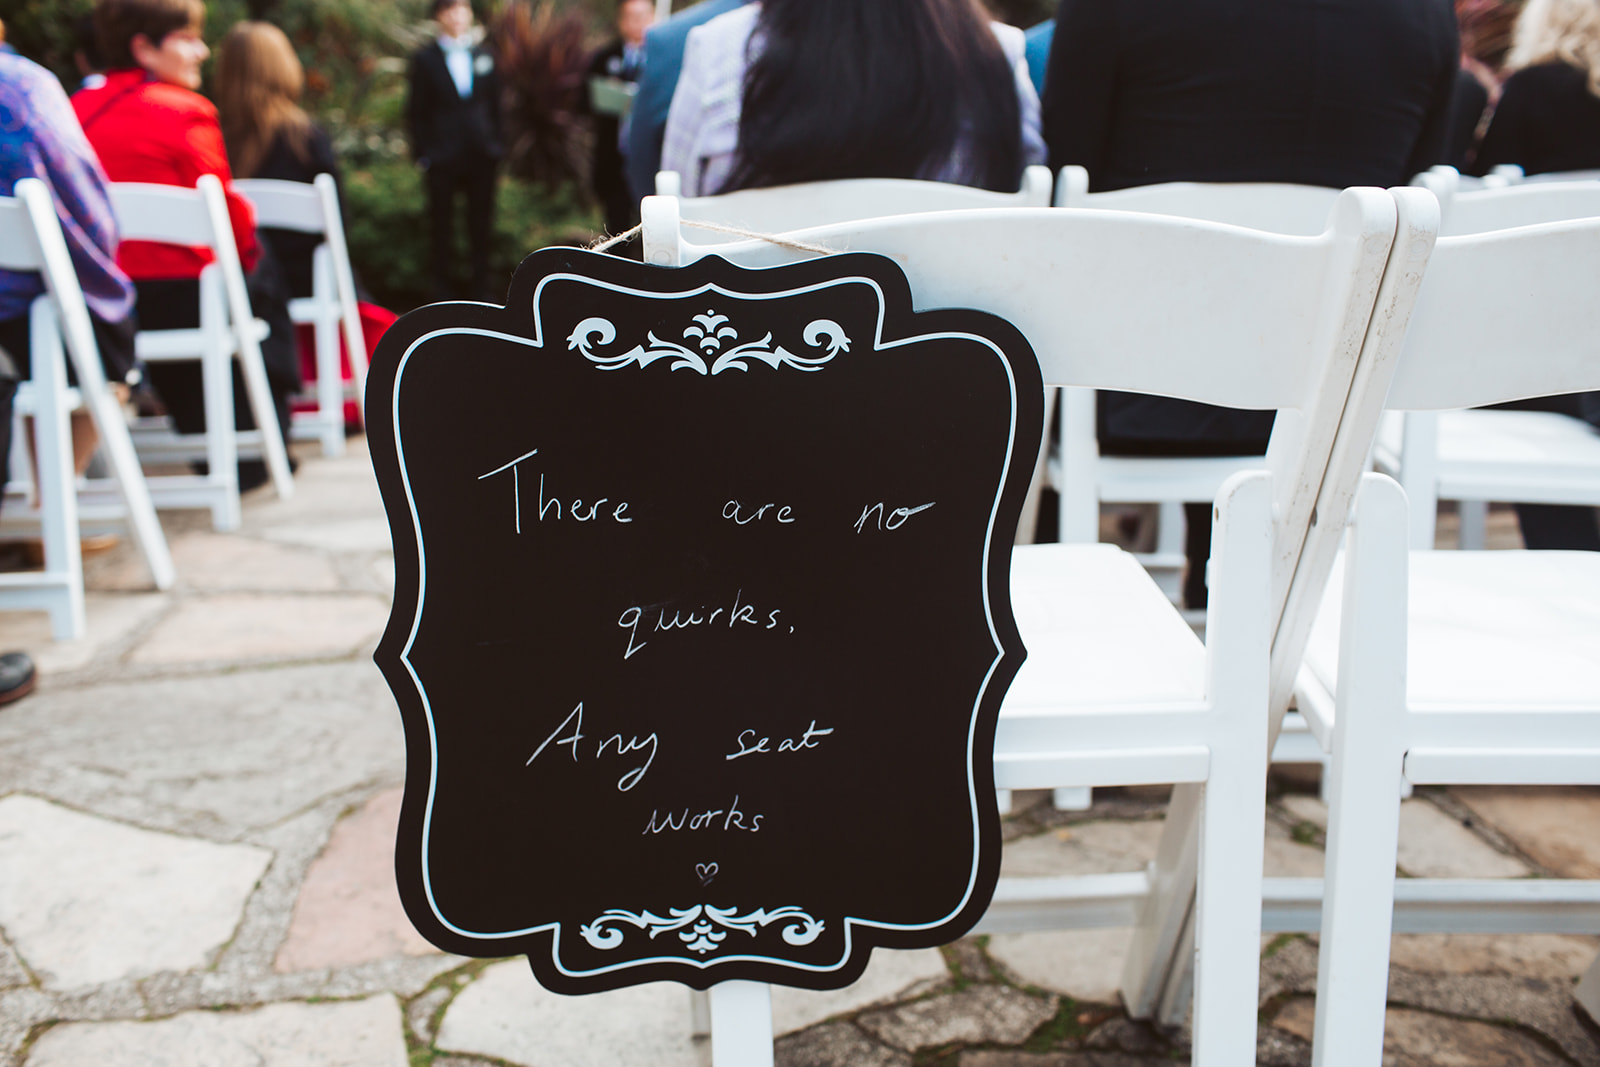 There are no
quirks.
Any seat
works